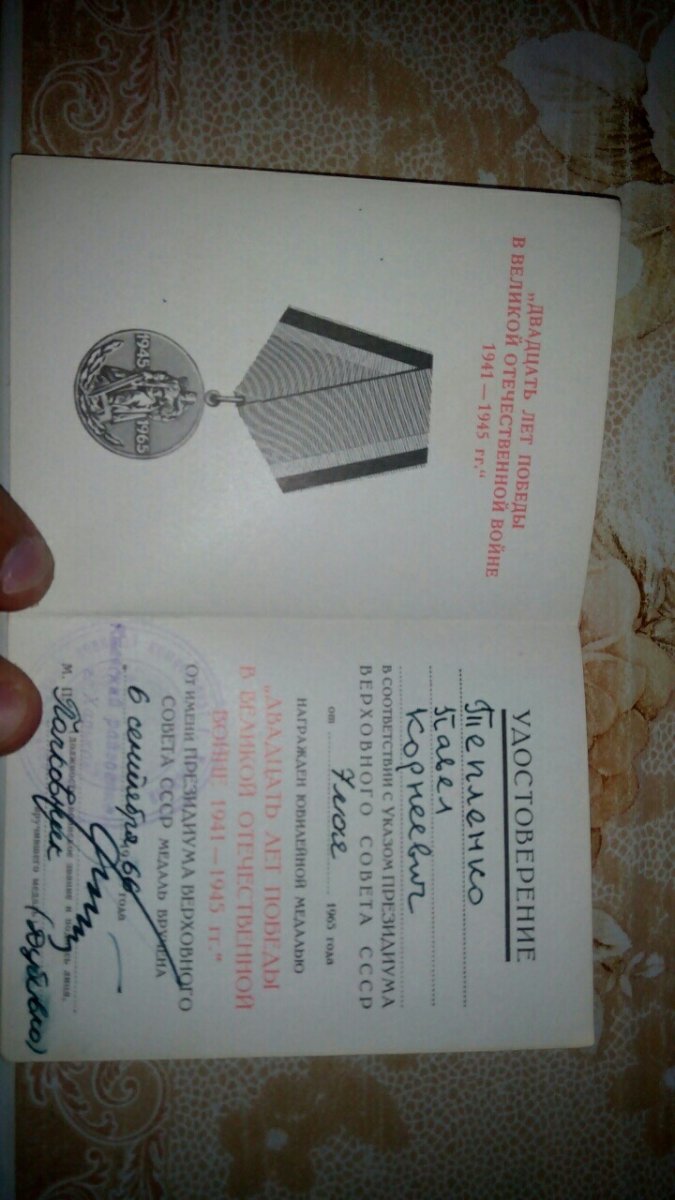 „ДВАДЦАТЬ ЛЕТ ПОБЕДЫ
В ВЕЛИКОЙ ОТЕЧЕСТВЕННОЙ ВОЙНЕ
1941—1945 гг.“
1945 1965
УДОСТОВЕРЕНИЕ
Тепленко
Павел
Корнеевич
В СООТВЕТСТВИИ С УКАЗОМ ПРЕЗИДИУМА
ВЕРХОВНОГО СОВЕТА СССР
от 7 мая 1965 года
НАГРАЖДЕН ЮБИЛЕЙНОЙ МЕДАЛЬЮ
„ДВАДЦАТЬ ЛЕТ ПОБЕДЫ
В ВЕЛИКОЙ ОТЕЧЕСТВЕННОЙ
ВОЙНЕ 1941—1945 гг.“
От имени ПРЕЗИДИУМА ВЕРХОВНОГО
СОВЕТА СССР МЕДАЛЬ ВРУЧЕНА
6 сентября 66 года
М. П.
Полковник